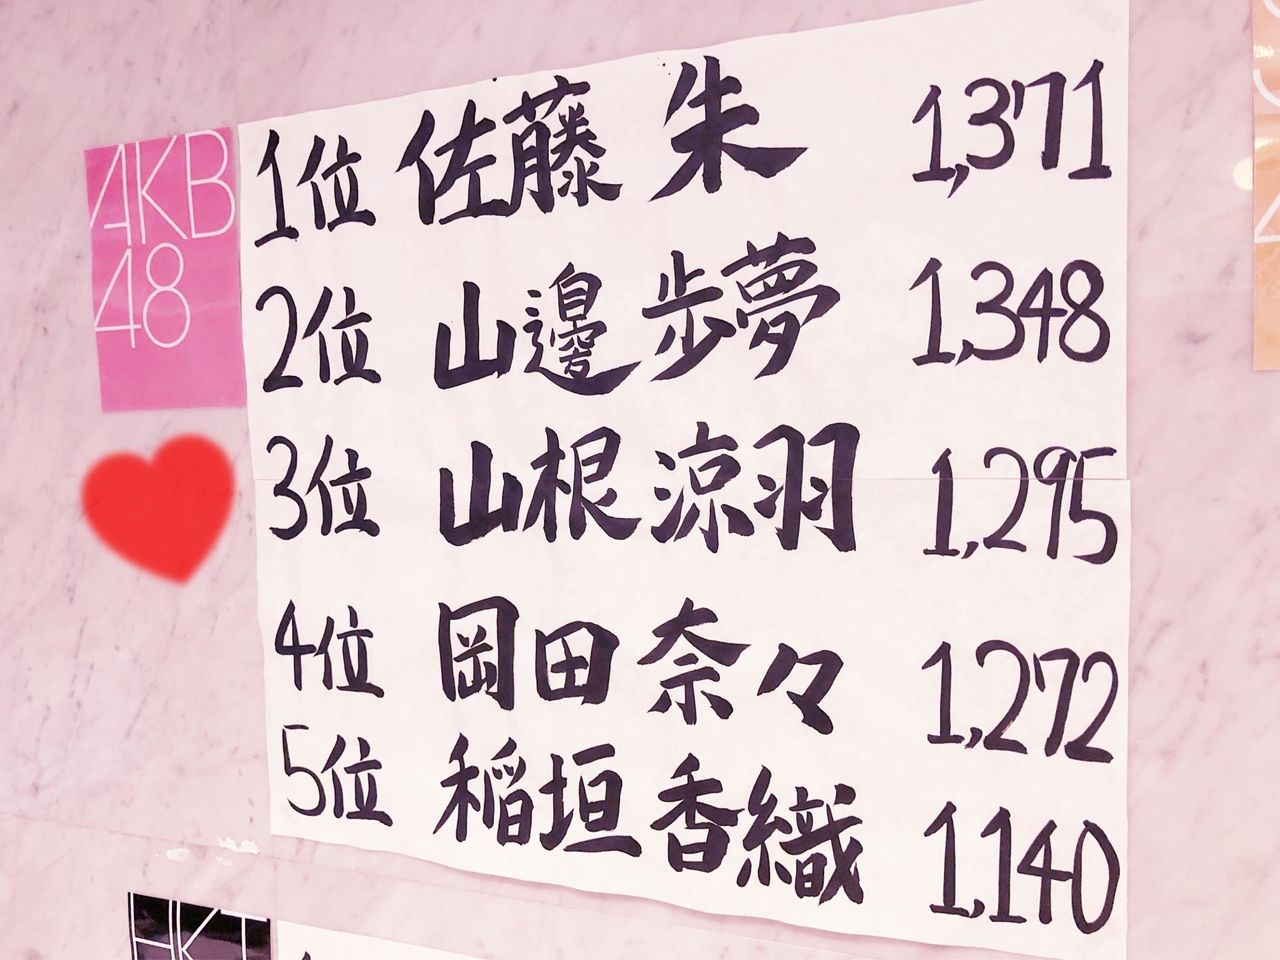 AKB
48
1位 佐藤 朱 1,371
2位 山邊 歩夢 1,348
3位 山根 涼羽 1,295
4位 岡田 奈々 1,272
5位 稲垣 香織 1,140
HKT